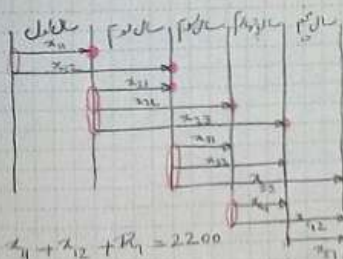 سال اول سال دوم سال سوم سال چهارم سال پنجم
x₁₁
x₁₂
x₂₁
x₂₂
x₂₃
x₃₁
x₃₂
x₃₃
x₄₁
x₄₂
x₅₁
x₁₁ + x₁₂ + R₁ = 2200